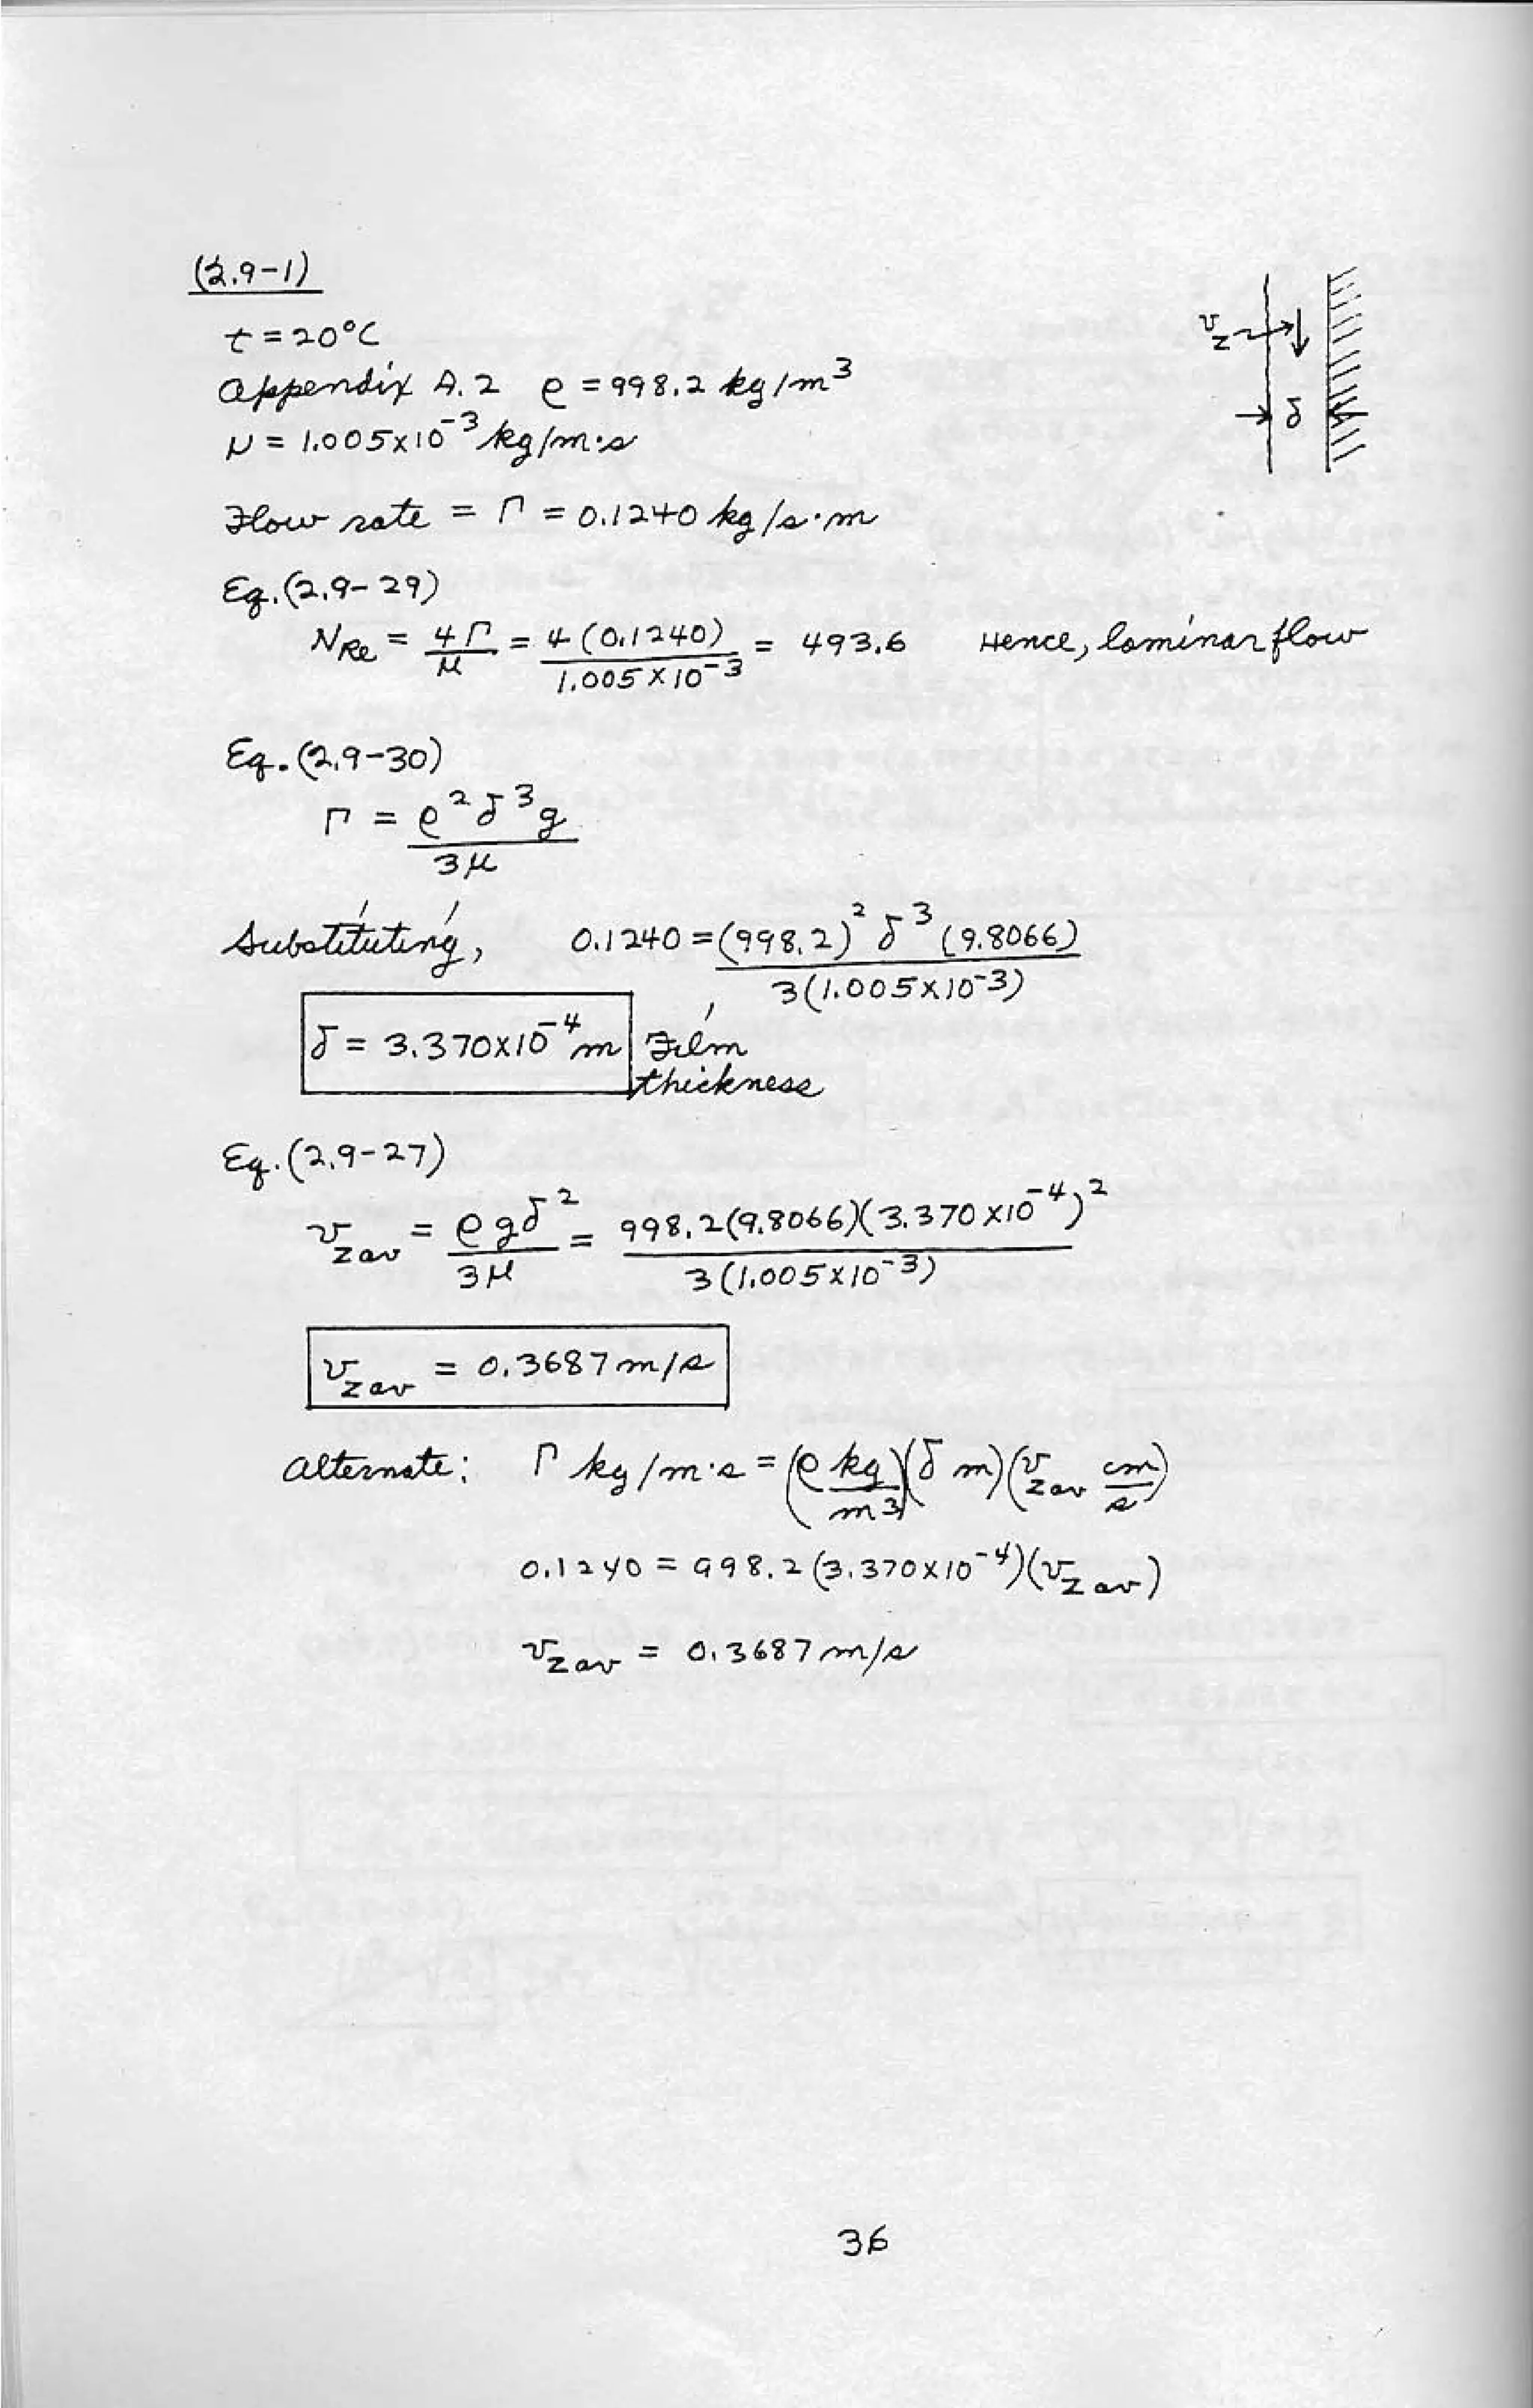 (2.9-1)
t = 20°C
Appendix A.2 ρ = 998.2 kg/m³
μ = 1.005x10⁻³ kg/m·s
v_z
δ
Flow rate = Γ = 0.1240 kg/s·m
Eq.(2.9-29)
N_Re = 4Γ/μ = 4(0.1240)/(1.005x10⁻³) = 493.6 Hence, laminar flow
Eq.(2.9-30)
Γ = ρ²δ³g/3μ
Substituting, 0.1240 = (998.2)²δ³(9.8066)/3(1.005x10⁻³)
δ = 3.370x10⁻⁴m Film
thickness
Eq.(2.9-27)
v_z av = ρgδ²/3μ = 998.2(9.8066)(3.370x10⁻⁴)²/3(1.005x10⁻³)
v_z av = 0.3687 m/s
Alternate: Γ kg/m·s = (ρ kg/m³)(δ m)(v_z av cm/s)
0.1240 = 998.2(3.370x10⁻⁴)(v_z av)
v_z av = 0.3687 m/s
36